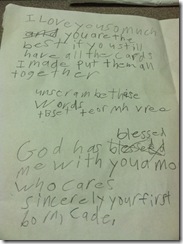 I love you so much
and you are the
best if you still
have all the cards
I made put them all
together
unscrambe these
words
tbset
blessed
God has blessed
me with you a mo
who cares
sincerely your first
born, Cade,